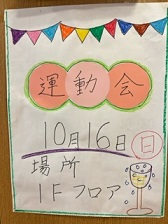 運動会
10月16日 日
場所
1Fフロア